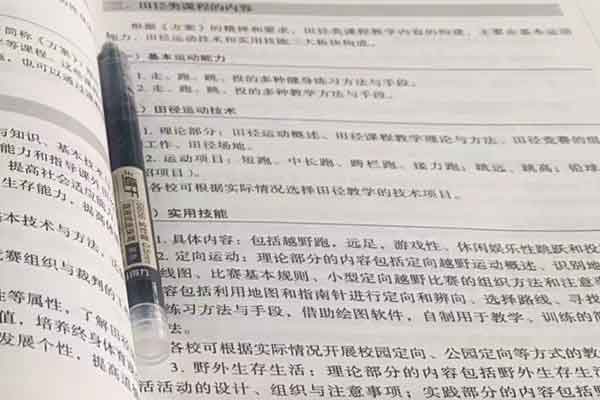 简称《方案》
等课程。这些
，也可以通过
与知识、基本技术
能力和指导课外
提高社会适应能
生存能力，提高
基本技术与方法，正
比赛组织与裁判的工
性等属性，了解田径
值，培养终身体育
发展个性，提高适
二、田径类课程的内容
根据《方案》的精神和要求，田径类课程教学内容的构建，主要由基本运动
能力、田径运动技术和实用技能三大板块构成。
一）基本运动能力
1. 走、跑、跳、投的多种健身练习方法与手段。
2. 走、跑、跳、投的多种教学方法与手段。
）田径运动技术
1. 理论部分：田径运动概述、田径课程教学理论与方法、田径竞赛的组
工作、田径场地。
2. 运动项目：短跑、中长跑、跨栏跑、接力跑；跳远、跳高；铅球
绍项目）。
各校可根据实际情况选择田径教学的技术项目。
）实用技能
1. 具体内容：包括越野跑，远足，游戏性、休闲娱乐性跑跃和投
2. 定向运动：理论部分的内容包括定向越野运动概述、识别地
线图、比赛基本规则、小型定向越野比赛的组织方法和注意
容包括利用地图和指南针进行定向和辨向、选择路线、寻找
练习方法与手段，借助绘图软件，自制用于教学、训练的简
法。
各校可根据实际情况开展校园定向、公园定向等方式的教
3. 野外生存生活：理论部分的内容包括野外生存生活
活活动的设计、组织与注意事项；实践部分的内容包